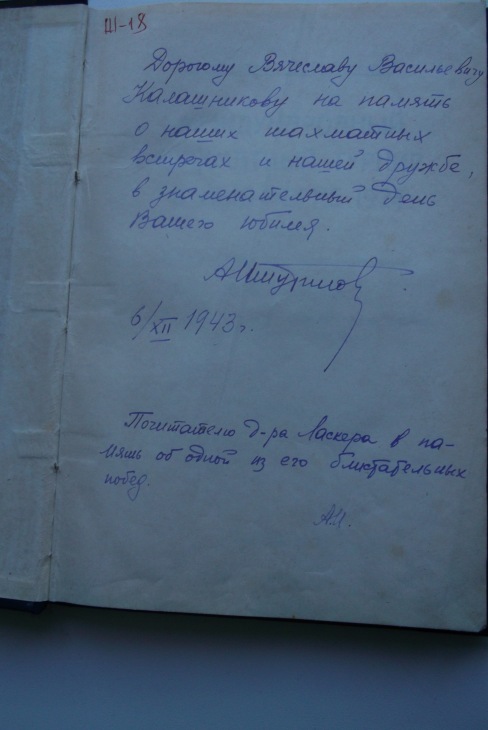 Ш-18
Дорогому Вячеславу Васильевичу
Калашникову на память
о наших шахматных
встречах и нашей дружбе,
в знаменательный день
Вашего юбилея.
6/XII 1943 г.
Почитателю д-ра Ласкера в па-
мять об одной из его блистательных
побед.